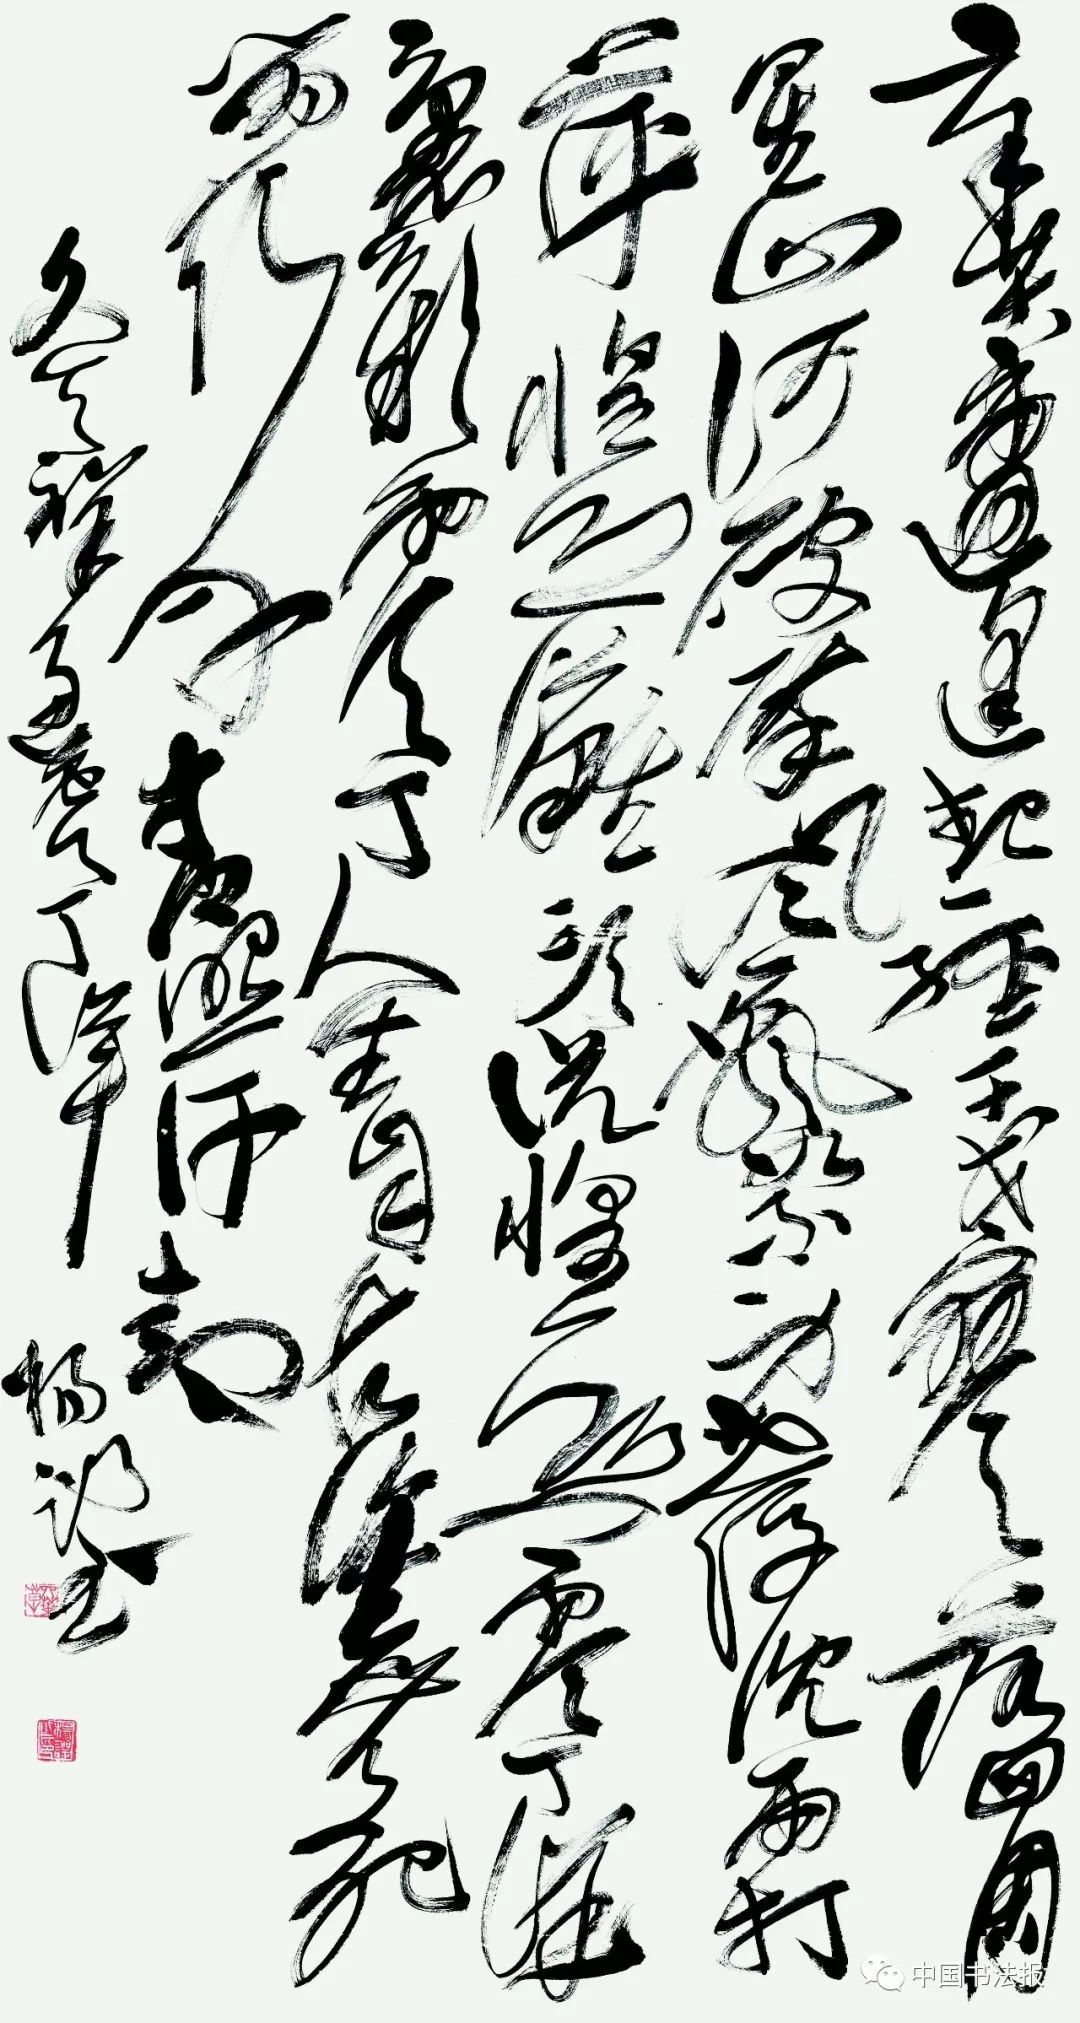 辛苦遭逢起一經干戈寥落四周
星山河破碎風飄絮身世浮沉雨打
萍惶恐灘頭說惶恐零丁洋
裏歎零丁人生自古誰無死
留取丹心照汗青
文天祥過零丁洋 楊
中国书法报